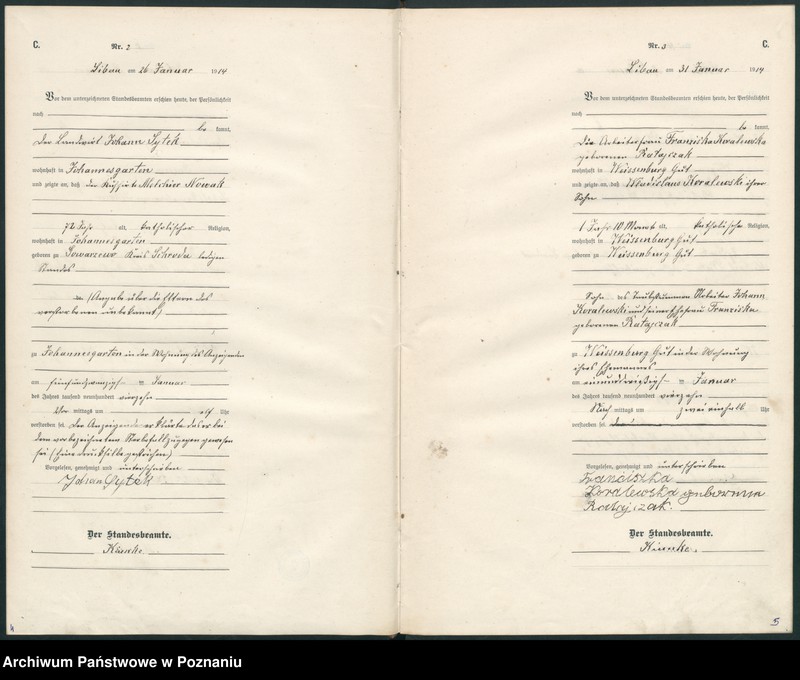 C.
Nr. 2
Libau am 26 Januar 1914
Vor dem unterzeichneten Standesbeamten erschien heute, der Persönlichkeit
nach
be kannt,
der Landwirt Johann Gytek
wohnhaft in Johannesgarten
und zeigte an, daß der Melchior Nowak
72 Jahr alt, katholischer Religion,
wohnhaft in Johannesgarten
geboren zu Kreis Schroda ledigen
Standes
(Angabe über die Eltern des
verstorbenen unbekannt)
zu Johannesgarten in der Wohnung des Anzeigenden
am fünfundzwanzigsten Januar
des Jahres tausend neunhundert vierzehn
Vor mittags um elf Uhr
verstorben sei. Der Anzeigende erklärte das er bei
dem vorbezeichneten Sterbefall zugegen gewesen
sei (Eine Druckselbe gestrichen)
Vorgelesen, genehmigt und unterschrieben
Johan Gytek
Der Standesbeamte.
4
C.
Nr. 3
Libau am 31 Januar 1914
Vor dem unterzeichneten Standesbeamten erschien heute, der Persönlichkeit
nach
be kannt,
die Arbeiterfrau Franziska Koralewska
geborenen Ratajczak
wohnhaft in Weissenburg Gut
und zeigte an, daß Wladislaus Koralewski ihrer
Sohn
1 Jahr 10 Monat alt, katholische Religion,
wohnhaft in Weissenburg Gut
geboren zu Weissenburg Gut
Sohn des Arbeiter Johann
Koralewski und seiner Ehefrau Franziska
geborenen Ratajczak
zu Weissenburg Gut in der Wohnung
ihres Ehemannes
am einunddreißigsten Januar
des Jahres tausend neunhundert vierzehn
Nach mittags um zwei einhalb Uhr
verstorben sei.
Vorgelesen, genehmigt und unterschrieben
Franciszka
Koralewska geborenen
Ratajczak.
Der Standesbeamte.
5
Archiwum Państwowe w Poznaniu